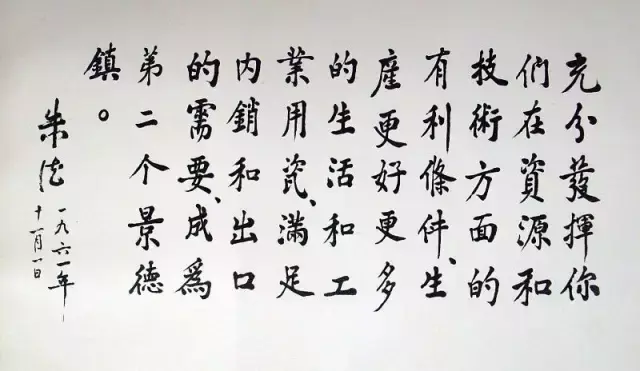 充分發揮你
們在資源和
技術方面的
有利條件、生
產更好更多
的生活和工
業用瓷、滿足
內銷和出口
的需要、成為
第二个景德
鎮。
朱德
一九六一年
十一月一日